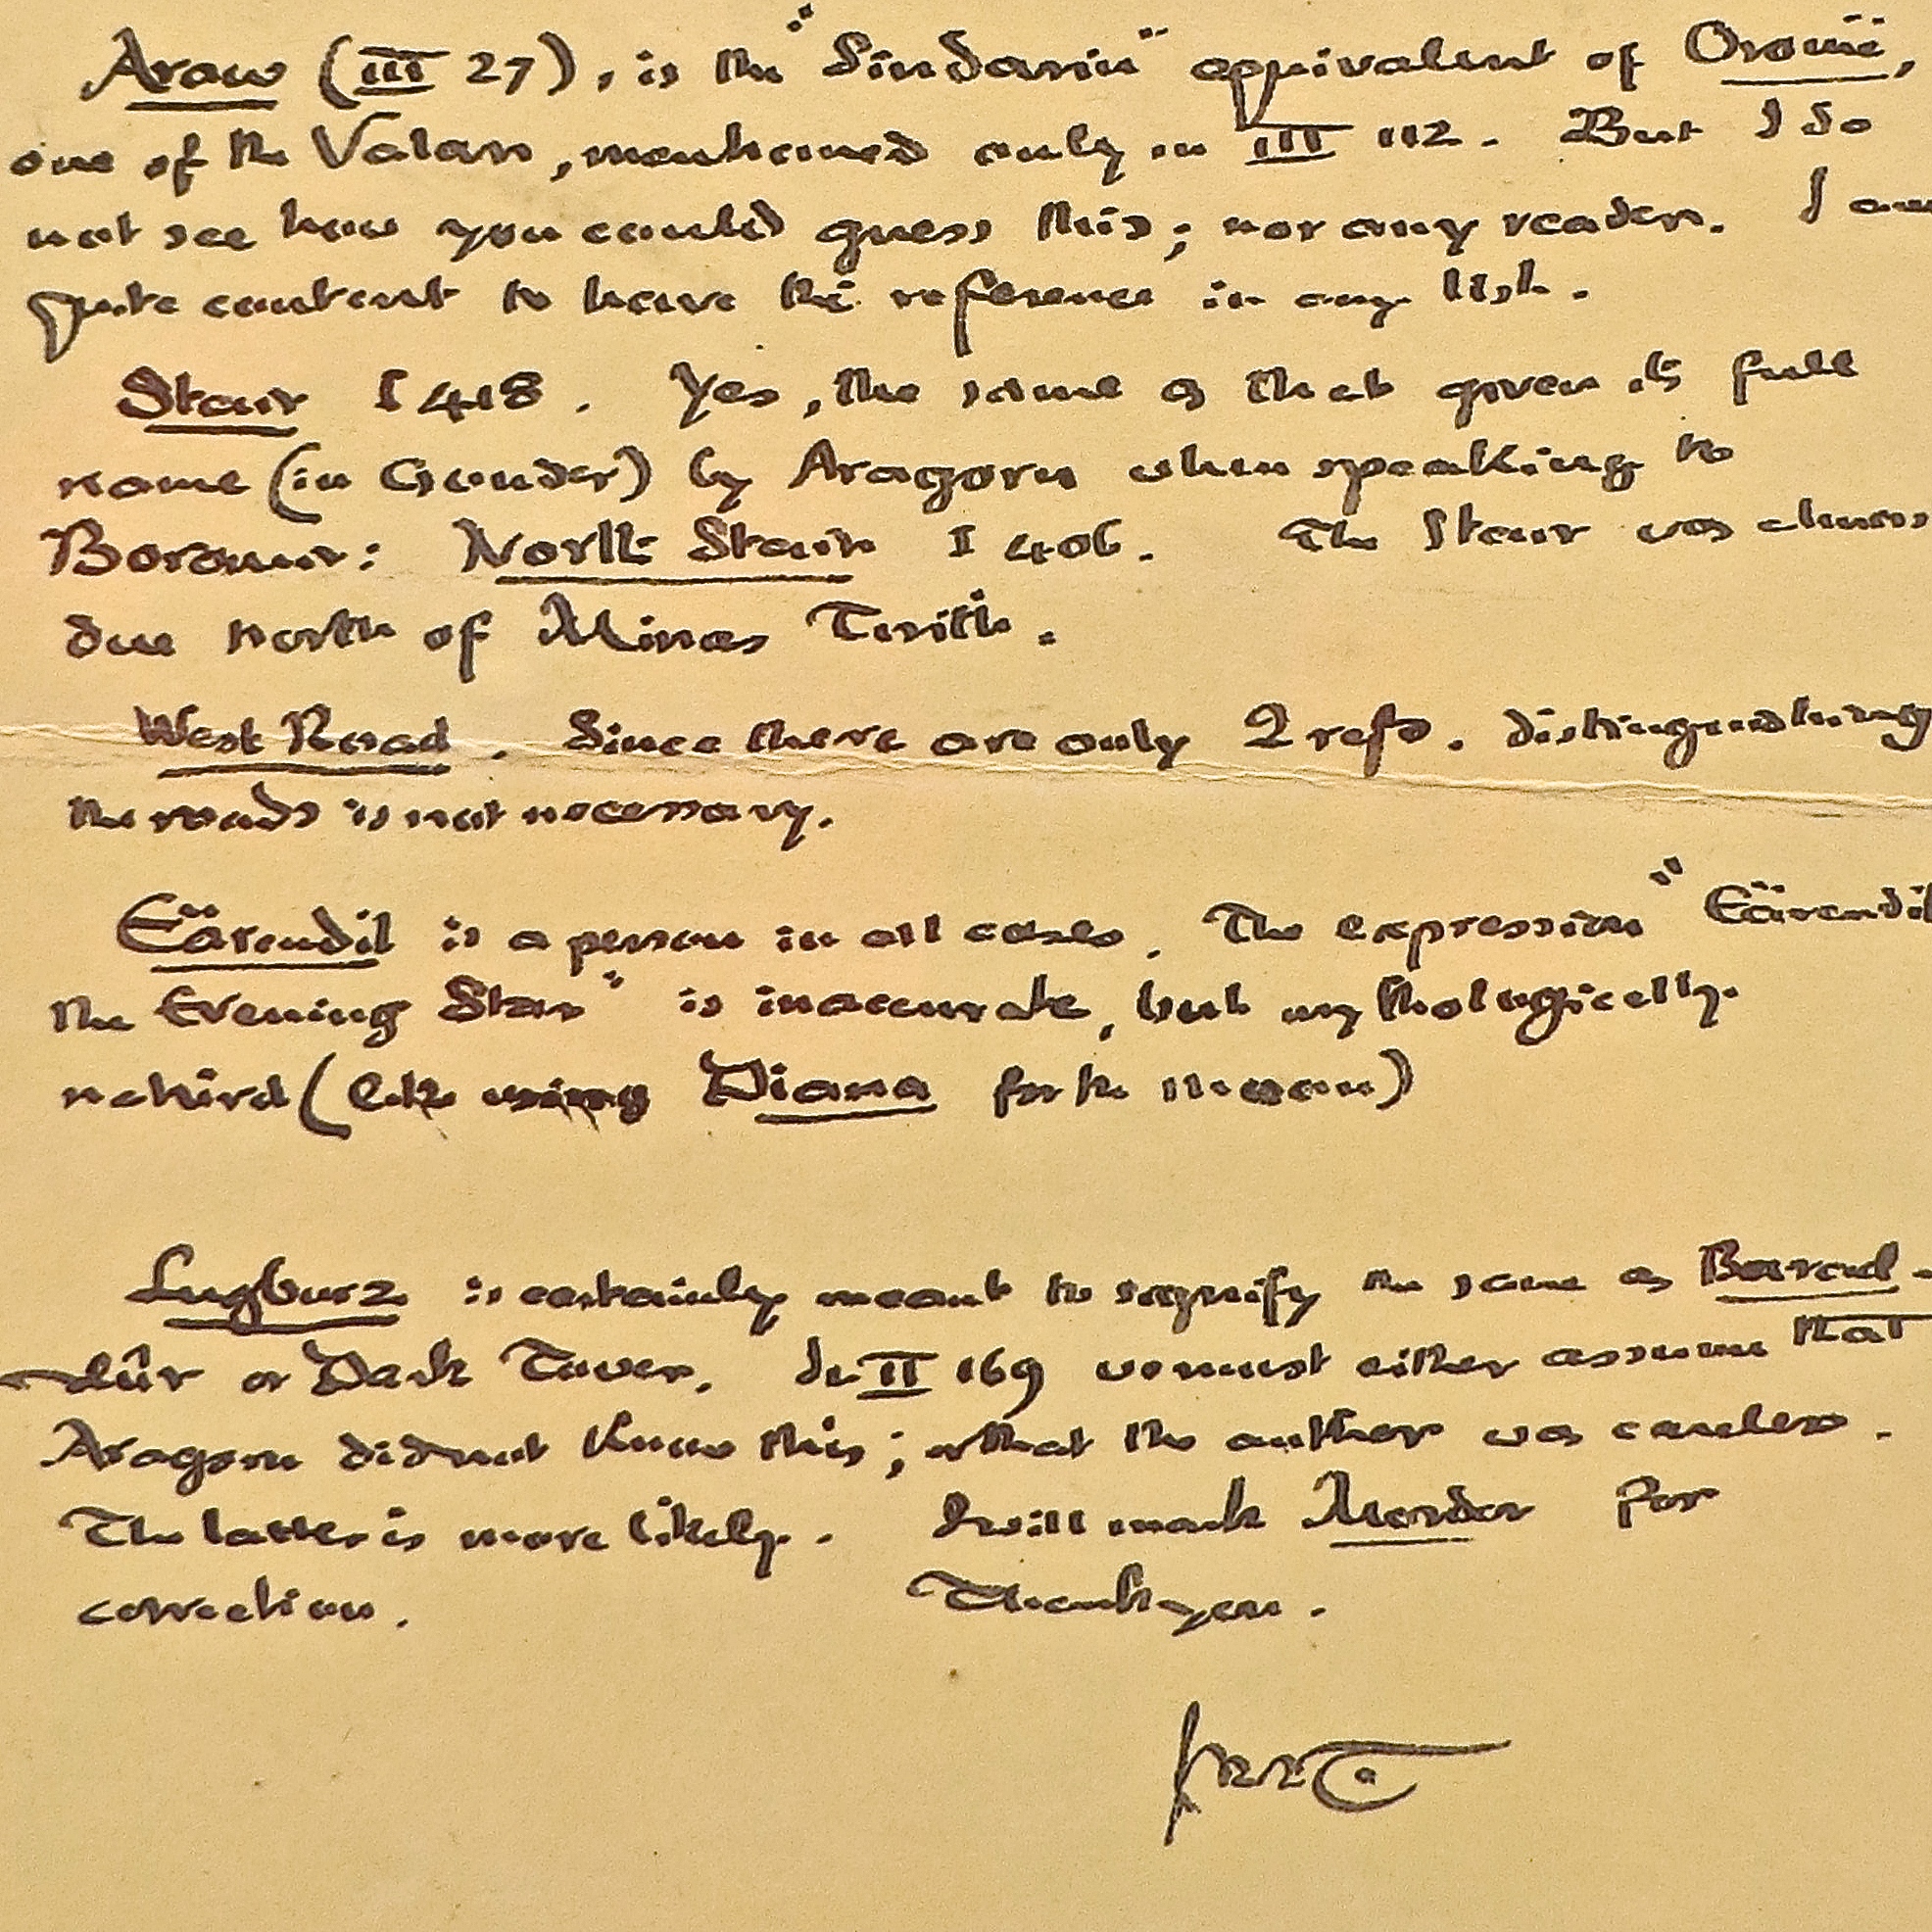 Araw (III 27), is the "Sindarin" equivalent of Oromë,
one of the Valar, mentioned only in III 112. But I do
not see how you could guess this; nor any reader. I am
quite content to leave the reference in any list.
Stair I 418. Yes, the same as that given its full
name (in Gondor) by Aragorn when speaking to
Boromir: North Stair I 406. The Stair was almost
due north of Minas Tirith.
West Road. Since there are only 2 refs. distinguishing
the roads is not necessary.
Eärendil is a person in all cases. The expression "Eärendil
the Evening Star" is inaccurate, but mythologically
natural (like using Diana for the moon)
Lugburz is certainly meant to signify the same as Barad-
dûr or Dark Tower. In II 169 we must either assume that
Aragorn did not know this; or that the author was careless.
The latter is more likely. I will mark Mordor for
correction. Thank you.
JRRT